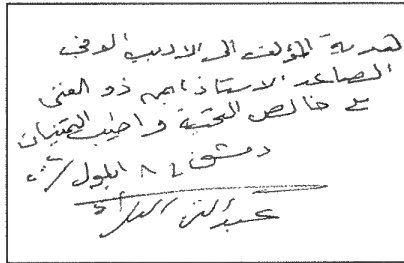 هدية المؤلف الى الاديب الوفي
الصاعد الاستاذ ذو الغنى
مع خالص التحية واطيب التمنيات
دمشق ايلول
عبد